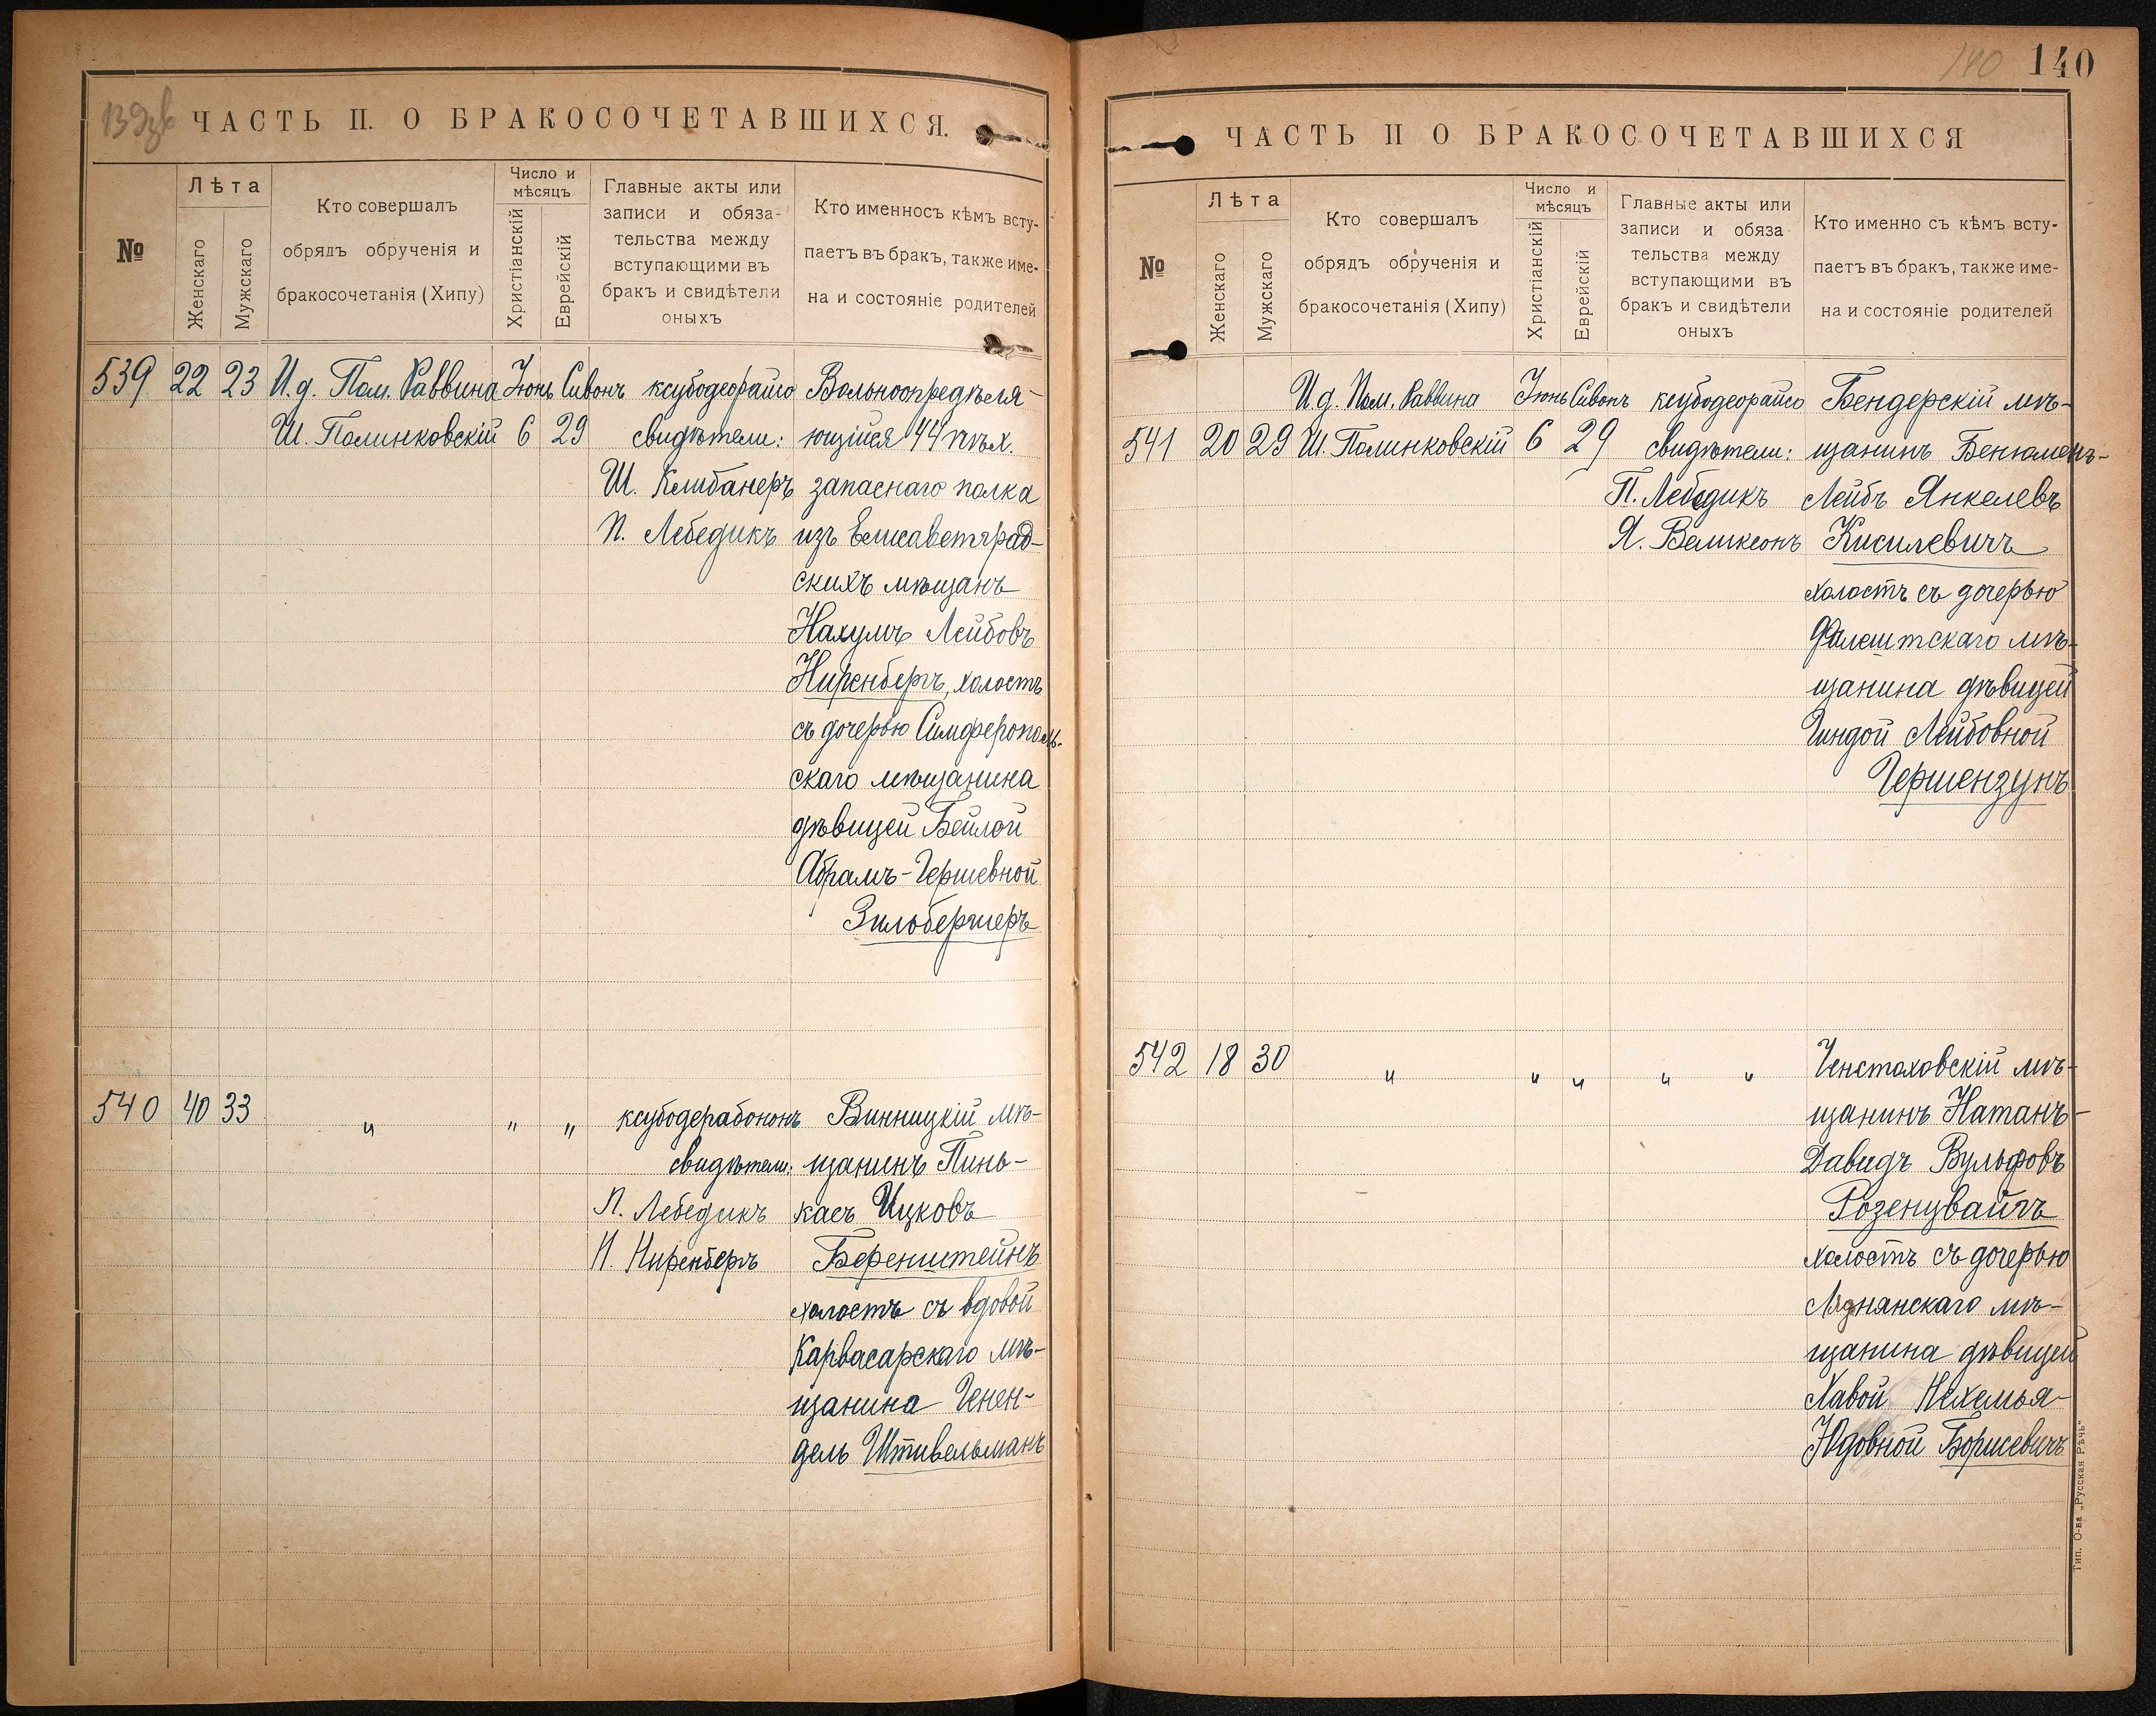 139
ЧАСТЬ П. О БРАКОСОЧЕТАВШИХСЯ.
№
Лѣта
Женскаго
Мужскаго
Кто совершалъ
обрядъ обрученія и
бракосочетанія (Хипу)
Число и
мѣсяцъ
Христіанскій
Еврейскій
Главные акты или
записи и обяза-
тельства между
вступающими въ
бракъ и свидѣтели
оныхъ
Кто именносъ кѣмъ всту-
паетъ въ бракъ, также име-
на и состояніе родителей
539 22 23 И.д. Пом. Раввина Іюнь Сивонъ ксубодеорайсо Вольноопредѣля-
Ш. Полинковскій 6 29 свидѣтели: ющійся 44 пѣх.
Ш. Клибанеръ запаснаго полка
П. Лебедикъ изъ Елисаветград-
скихъ мѣщанъ
Нахумъ Лейбовъ
Ниренбергъ, холостъ
съ дочерью Симферополь-
скаго мѣщанина
дѣвицей Бейлой
Абрамъ-Гершевной
Зильбергеръ
540 40 33 " " " ксубодерабононъ Винницкій мѣ-
свидѣтели: щанинъ Пинь-
П. Лебедикъ касъ Ицковъ
Н. Ниренбергъ Беренштейнъ
холостъ съ вдовой
Карвасарскаго мѣ-
щанина Генен-
дель Штивельманъ
140 140
ЧАСТЬ П О БРАКОСОЧЕТАВШИХСЯ
№
Лѣта
Женскаго
Мужскаго
Кто совершалъ
обрядъ обрученія и
бракосочетанія (Хипу)
Число и
мѣсяцъ
Христіанскій
Еврейскій
Главные акты или
записи и обяза
тельства между
вступающими въ
бракъ и свидѣтели
оныхъ
Кто именно съ кѣмъ всту-
паетъ въ бракъ, также име-
на и состояніе родителей
И.д. Пом. Раввина Іюнь Сивонъ ксубодеорайсо Бендерскій мѣ-
541 20 29 Ш. Полинковскій 6 29 свидѣтели: щанинъ Бенюменъ-
П. Лебедикъ Лейбъ Янкелевъ
Я. Великсонъ Кисилевичъ
холостъ съ дочерью
Фалештскаго мѣ-
щанина дѣвицей
Гиндой Лейбовной
Гершензунъ
542 18 30 " " " " " Ченстоховскій мѣ-
щанинъ Натанъ-
Давидъ Вульфовъ
Розенцвайгъ
холостъ съ дочерью
Ляднянскаго мѣ-
щанина дѣвицей
Хавой Нехемья-
Юдовной Борисевичъ
Тип. О-ва „Русская Рѣчь"